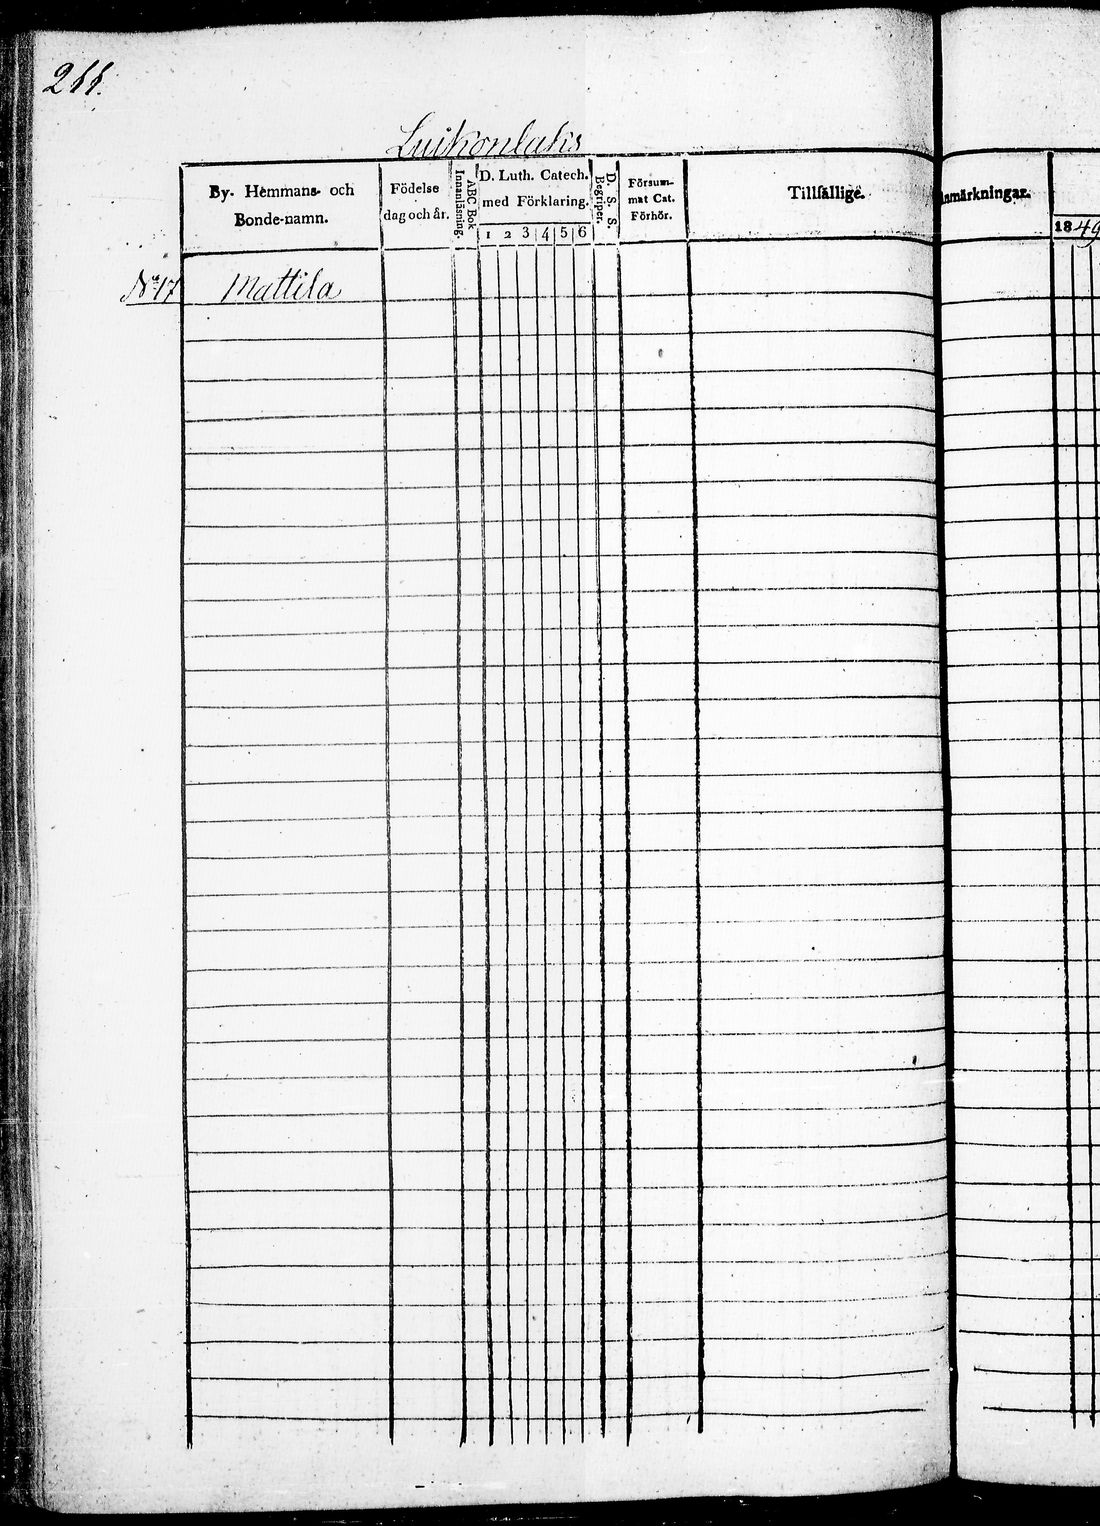 211.
Luikonlaks
By- Hemmans- och
Bonde-namn.
Födelse
dag och år.
ABC Bok
Innanläsning.
D. Luth. Catech.
med Förklaring.
1 2 3 4 5 6
D. S. S.
Begriper.
Försum-
mat Cat.
Förhör.
Tillfällige.
Anmärkningar.
1849
No 17 Mattila